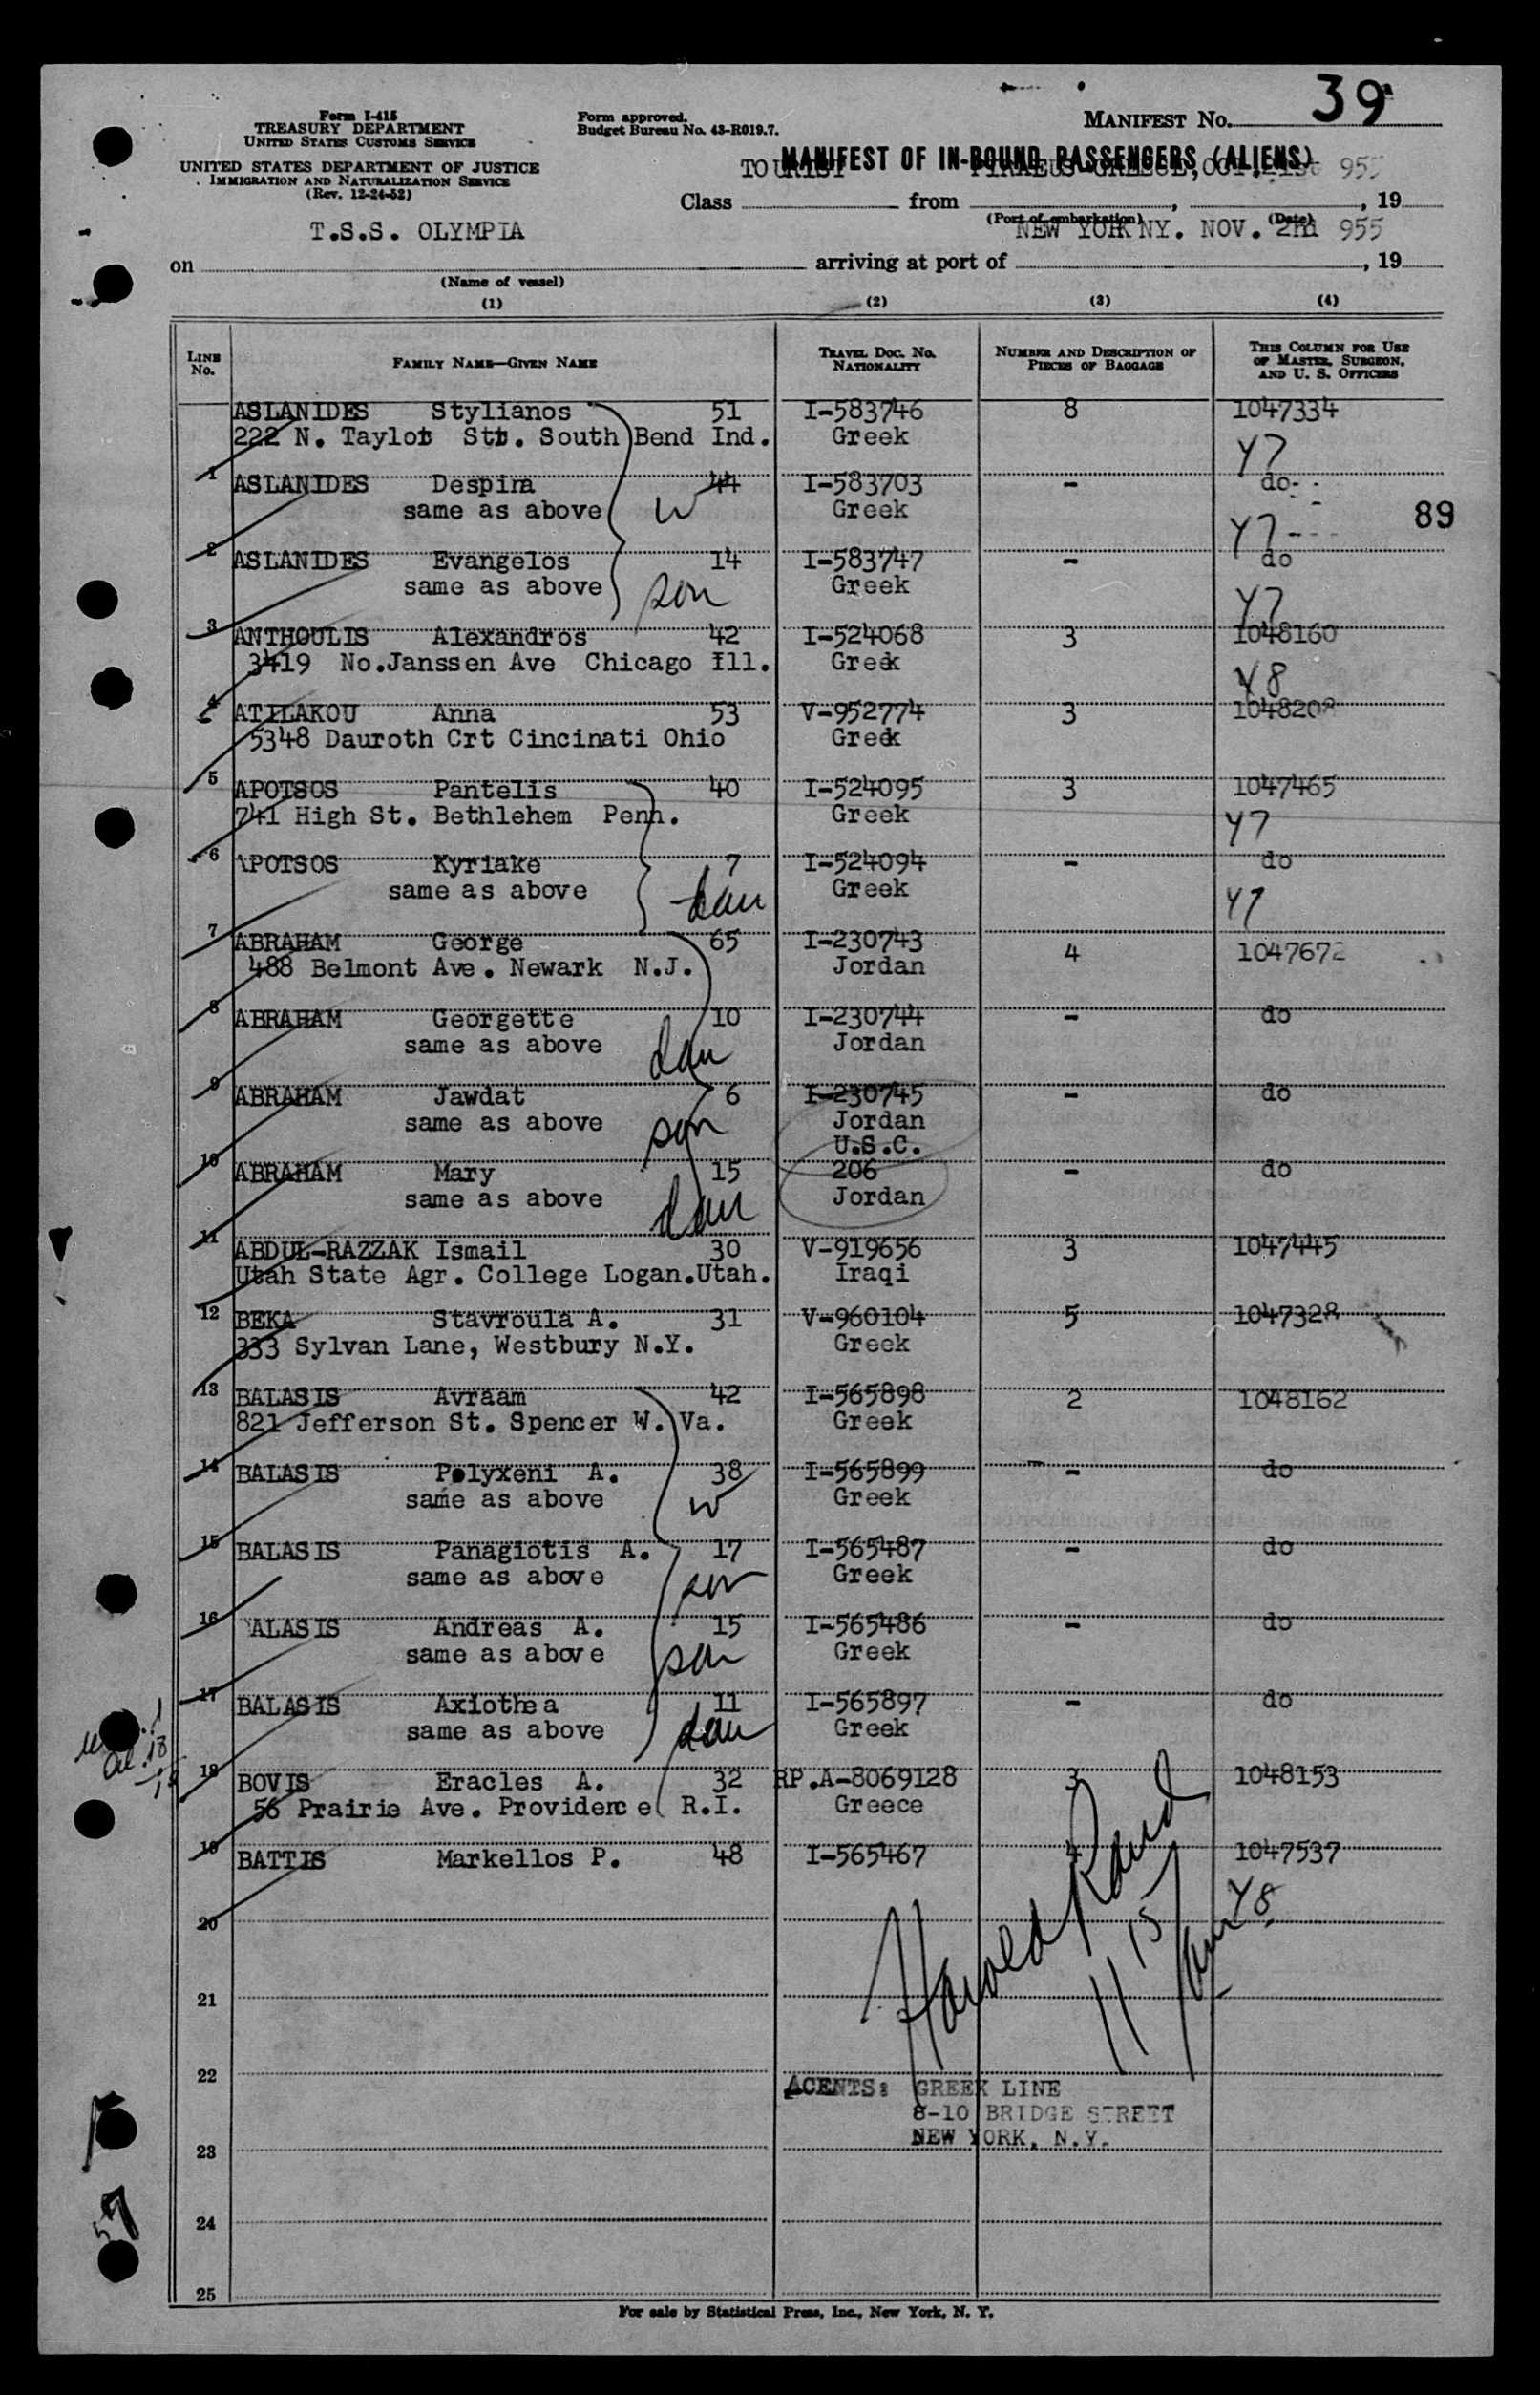 39
Form I-415
TREASURY DEPARTMENT
UNITED STATES CUSTOMS SERVICE
Form approved.
Budget Bureau No. 43-R019.7.
MANIFEST No.
UNITED STATES DEPARTMENT OF JUSTICE
IMMIGRATION AND NATURALIZATION SERVICE
(Rev. 12-24-52)
MANIFEST OF IN-BOUND PASSENGERS (ALIENS)
TOURIST PIRAEUS GREECE, OCT. 955
Class from , , 19
(Port of embarkation) (Date)
T.S.S. OLYMPIA NEW YORK NY. NOV. 955
on arriving at port of , 19
(Name of vessel)
(1) (2) (3) (4)
LINE No. FAMILY NAME—GIVEN NAME TRAVEL DOC. No. NATIONALITY NUMBER AND DESCRIPTION OF PIECES OF BAGGAGE THIS COLUMN FOR USE OF MASTER, SURGEON, AND U. S. OFFICERS
ASLANIDES Stylianos 51 I-583746 8 1047334
222 N. Taylot Stt. South Bend Ind. Greek Y7
1 ASLANIDES Despina 44 I-583703 - do
same as above W Greek Y7 89
2 ASLANIDES Evangelos 14 I-583747 - do
same as above son Greek Y7
3 ANTHOULIS Alexandros 42 I-524068 3 1048160
3419 No.Janssen Ave Chicago Ill. Greek Y8
4 ATILAKOU Anna 53 V-952774 3 1048208
5348 Dauroth Crt Cincinati Ohio Greek
5 APOTSOS Pantelis 40 I-524095 3 1047465
741 High St. Bethlehem Penn. Greek Y7
6 APOTSOS Kyriake 7 I-524094 - do
same as above dau Greek Y7
7 ABRAHAM George 65 I-230743 4 1047672
488 Belmont Ave. Newark N.J. Jordan
8 ABRAHAM Georgette 10 I-230744 - do
same as above dau Jordan
9 ABRAHAM Jawdat 6 I-230745 - do
same as above son Jordan
U.S.C.
10 ABRAHAM Mary 15 206 - do
same as above dau Jordan
11 ABDUL-RAZZAK Ismail 30 V-919656 3 1047445
Utah State Agr. College Logan.Utah. Iraqi
12 BEKA Stavroula A. 31 V-960104 5 1047328
333 Sylvan Lane, Westbury N.Y. Greek
13 BALASIS Avraam 42 I-565898 2 1048162
821 Jefferson St. Spencer W. Va. Greek
14 BALASIS Polyxeni A. 38 I-565899 - do
same as above W Greek
15 BALASIS Panagiotis A. 17 I-565487 - do
same as above son Greek
16 ALASIS Andreas A. 15 I-565486 - do
same as above son Greek
17 BALASIS Axiothea 11 I-565897 - do
same as above dau Greek
18 BOVIS Eracles A. 32 RP.A-8069128 3 1048153
56 Prairie Ave. Providence R.I. Greece
19 BATTIS Markellos P. 48 I-565467 4 1047537
Y8
20
Harold Rand
21
22
AGENTS: GREEK LINE
8-10 BRIDGE STREET
NEW YORK, N.Y.
23
24
25
For sale by Statistical Press, Inc., New York, N. Y.